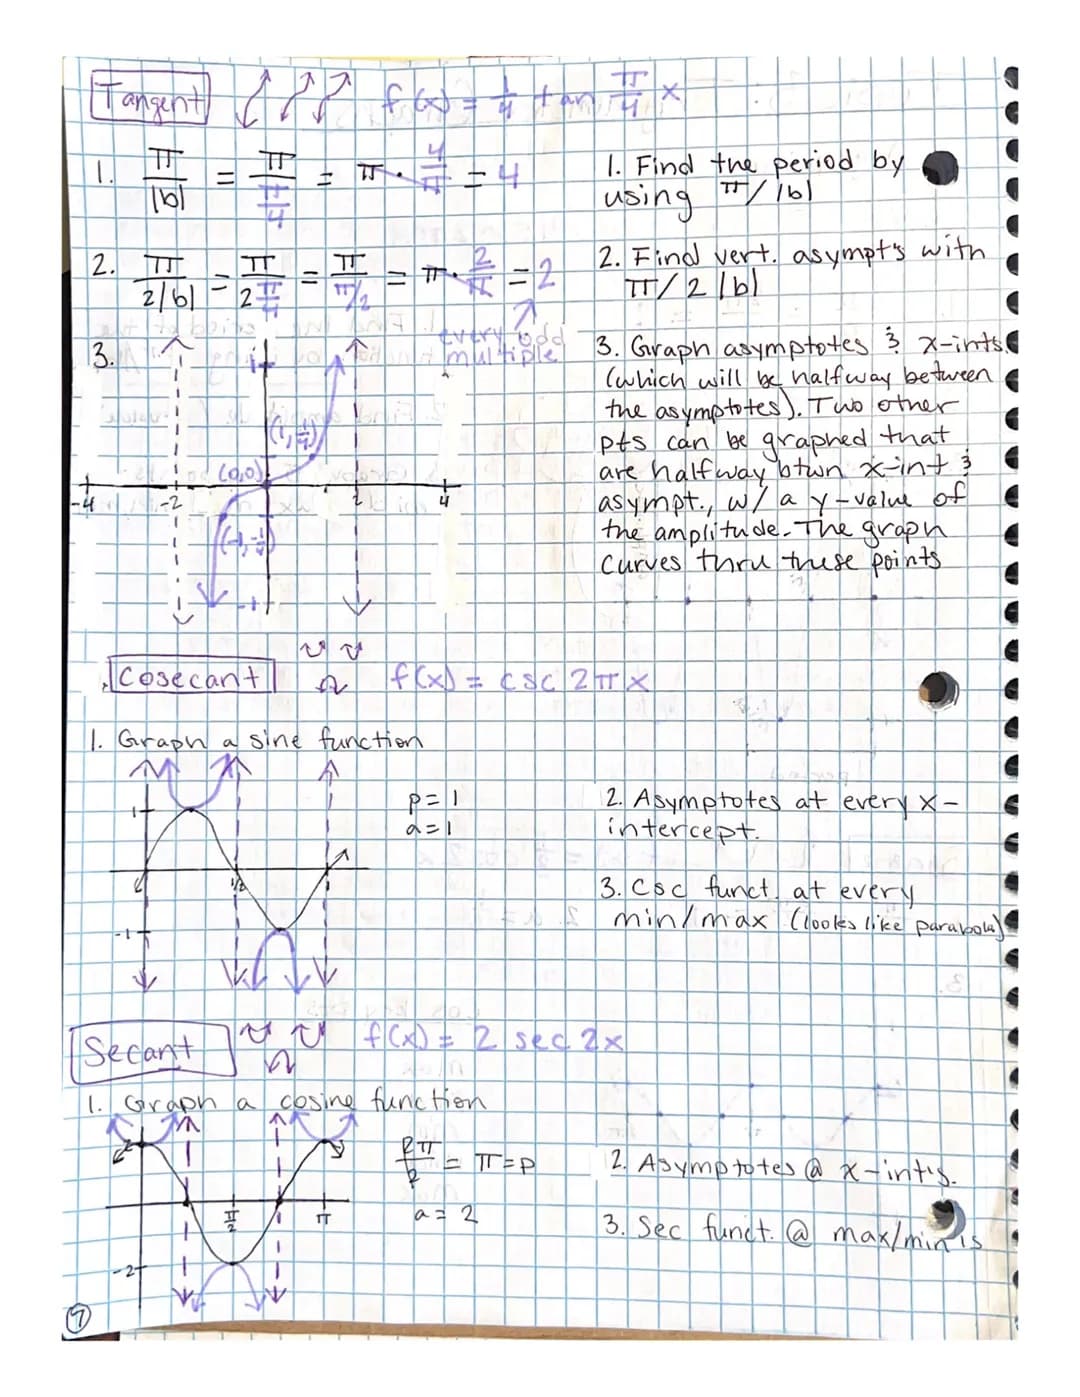 Tangent f(x) = 1/4 tan π/4 x
1. π/|b| = π/(π/4) = π · 4/π = 4
1. Find the period by
using π/|b|
2. π/2|b| = π/(2 π/4) = π/(π/2) = π · 2/π = 2
every odd
multiple
2. Find vert. asympt's with
π/2|b|
3.
1
(1, 1/4)
(0,0)
-4 -2 2 4
(-1, -1/4)
-1
3. Graph asymptotes & x-ints
(which will be halfway between
the asymptotes). Two other
pts can be graphed that
are halfway btwn x-int &
asympt., w/ a y-value of
the amplitude. The graph
curves thru these points
Cosecant f(x) = csc 2πx
1. Graph a sine function
1
1/2
-1
p = 1
a = 1
2. Asymptotes at every x-
intercept.
3. Csc funct. at every
min/max (looks like parabola)
Secant f(x) = 2 sec 2x
1. Graph a cosine function
π/2 π
-2
2π/2 = π = p
a = 2
2. Asymptotes @ x-int's.
3. Sec funct. @ max/min's
7